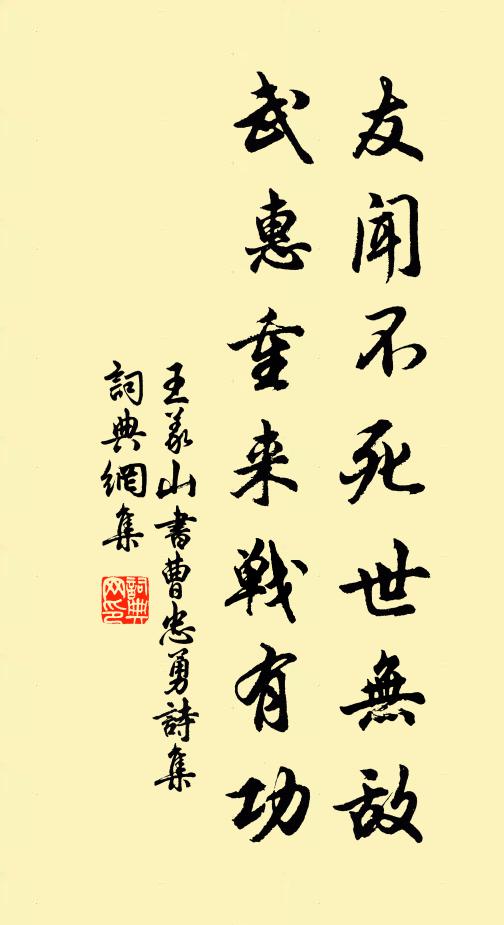 友聞不死世無敵
武惠重来戰有功
王義山書曹忠勇詩集
詞典網集
詞典網印